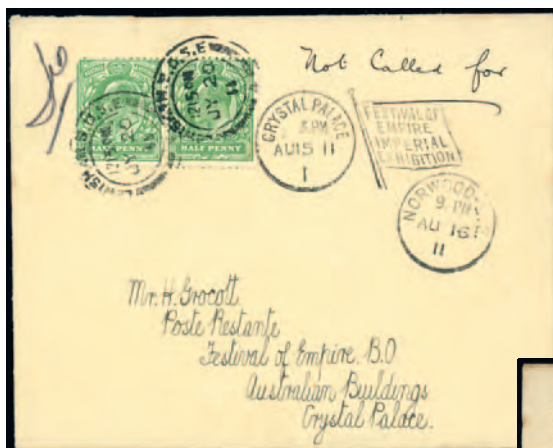 Not Called for
HALF PENNY
HALF PENNY
JY 20
11
CRYSTAL PALACE
5.PM
AU 15 11
1
FESTIVAL OF
EMPIRE
IMPERIAL
EXHIBITION
NORWOOD
9. PM
AU 16
11
Mr. H. Grocott
Poste Restante
Festival of Empire. B.O
Australian Buildings
Crystal Palace.